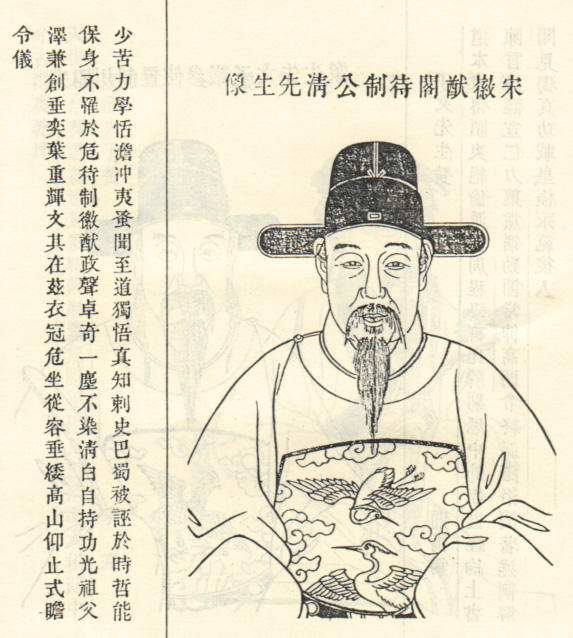 宋徽猷閣待制公清先生像
少苦力學恬澹冲夷蚤聞至道獨悟真知刺史巴蜀被誣於時哲能
保身不罹於危待制徽猷政聲卓奇一塵不染清白自持功光祖父
澤兼創垂奕葉重輝文其在茲衣冠危坐從容垂緌高山仰止式瞻
令儀